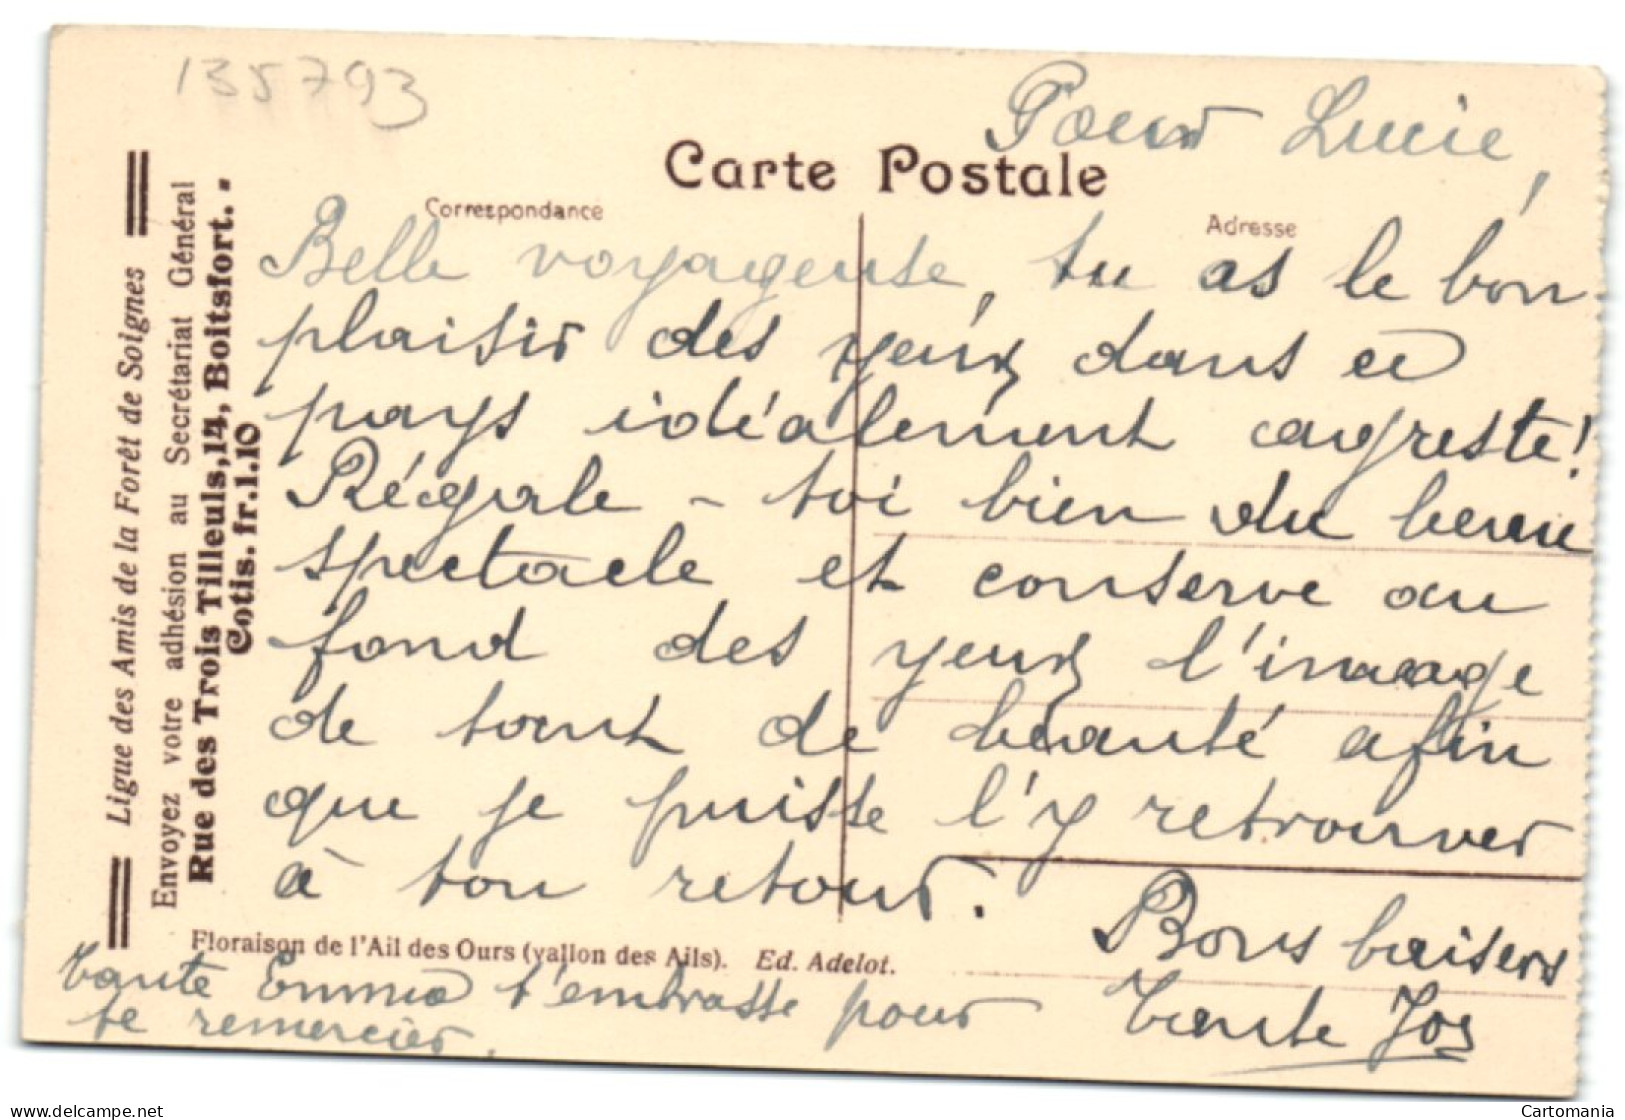 135793
Pour Lucie,
Carte Postale
Correspondance
Adresse
Belle voyageuse, tu as le bon
plaisir des yeux dans ce
pays idéalement agreste!
Régale - toi bien du beau
spectacle et conserve au
fond des yeux l'image
de tant de beauté afin
que je puisse l'y retrouver
à ton retour.
Bons baisers
Tante Jos
Tante Emma t'embrasse pour
te remercier.
Floraison de l'Ail des Ours (vallon des Ails). Ed. Adelot.
Ligue des Amis de la Forêt de Soignes
Envoyez votre adhésion au Secrétariat Général
Rue des Trois Tilleuls, 14, Boitsfort. -
Cotis. fr. 1.10
delcampe.net
Cartomania